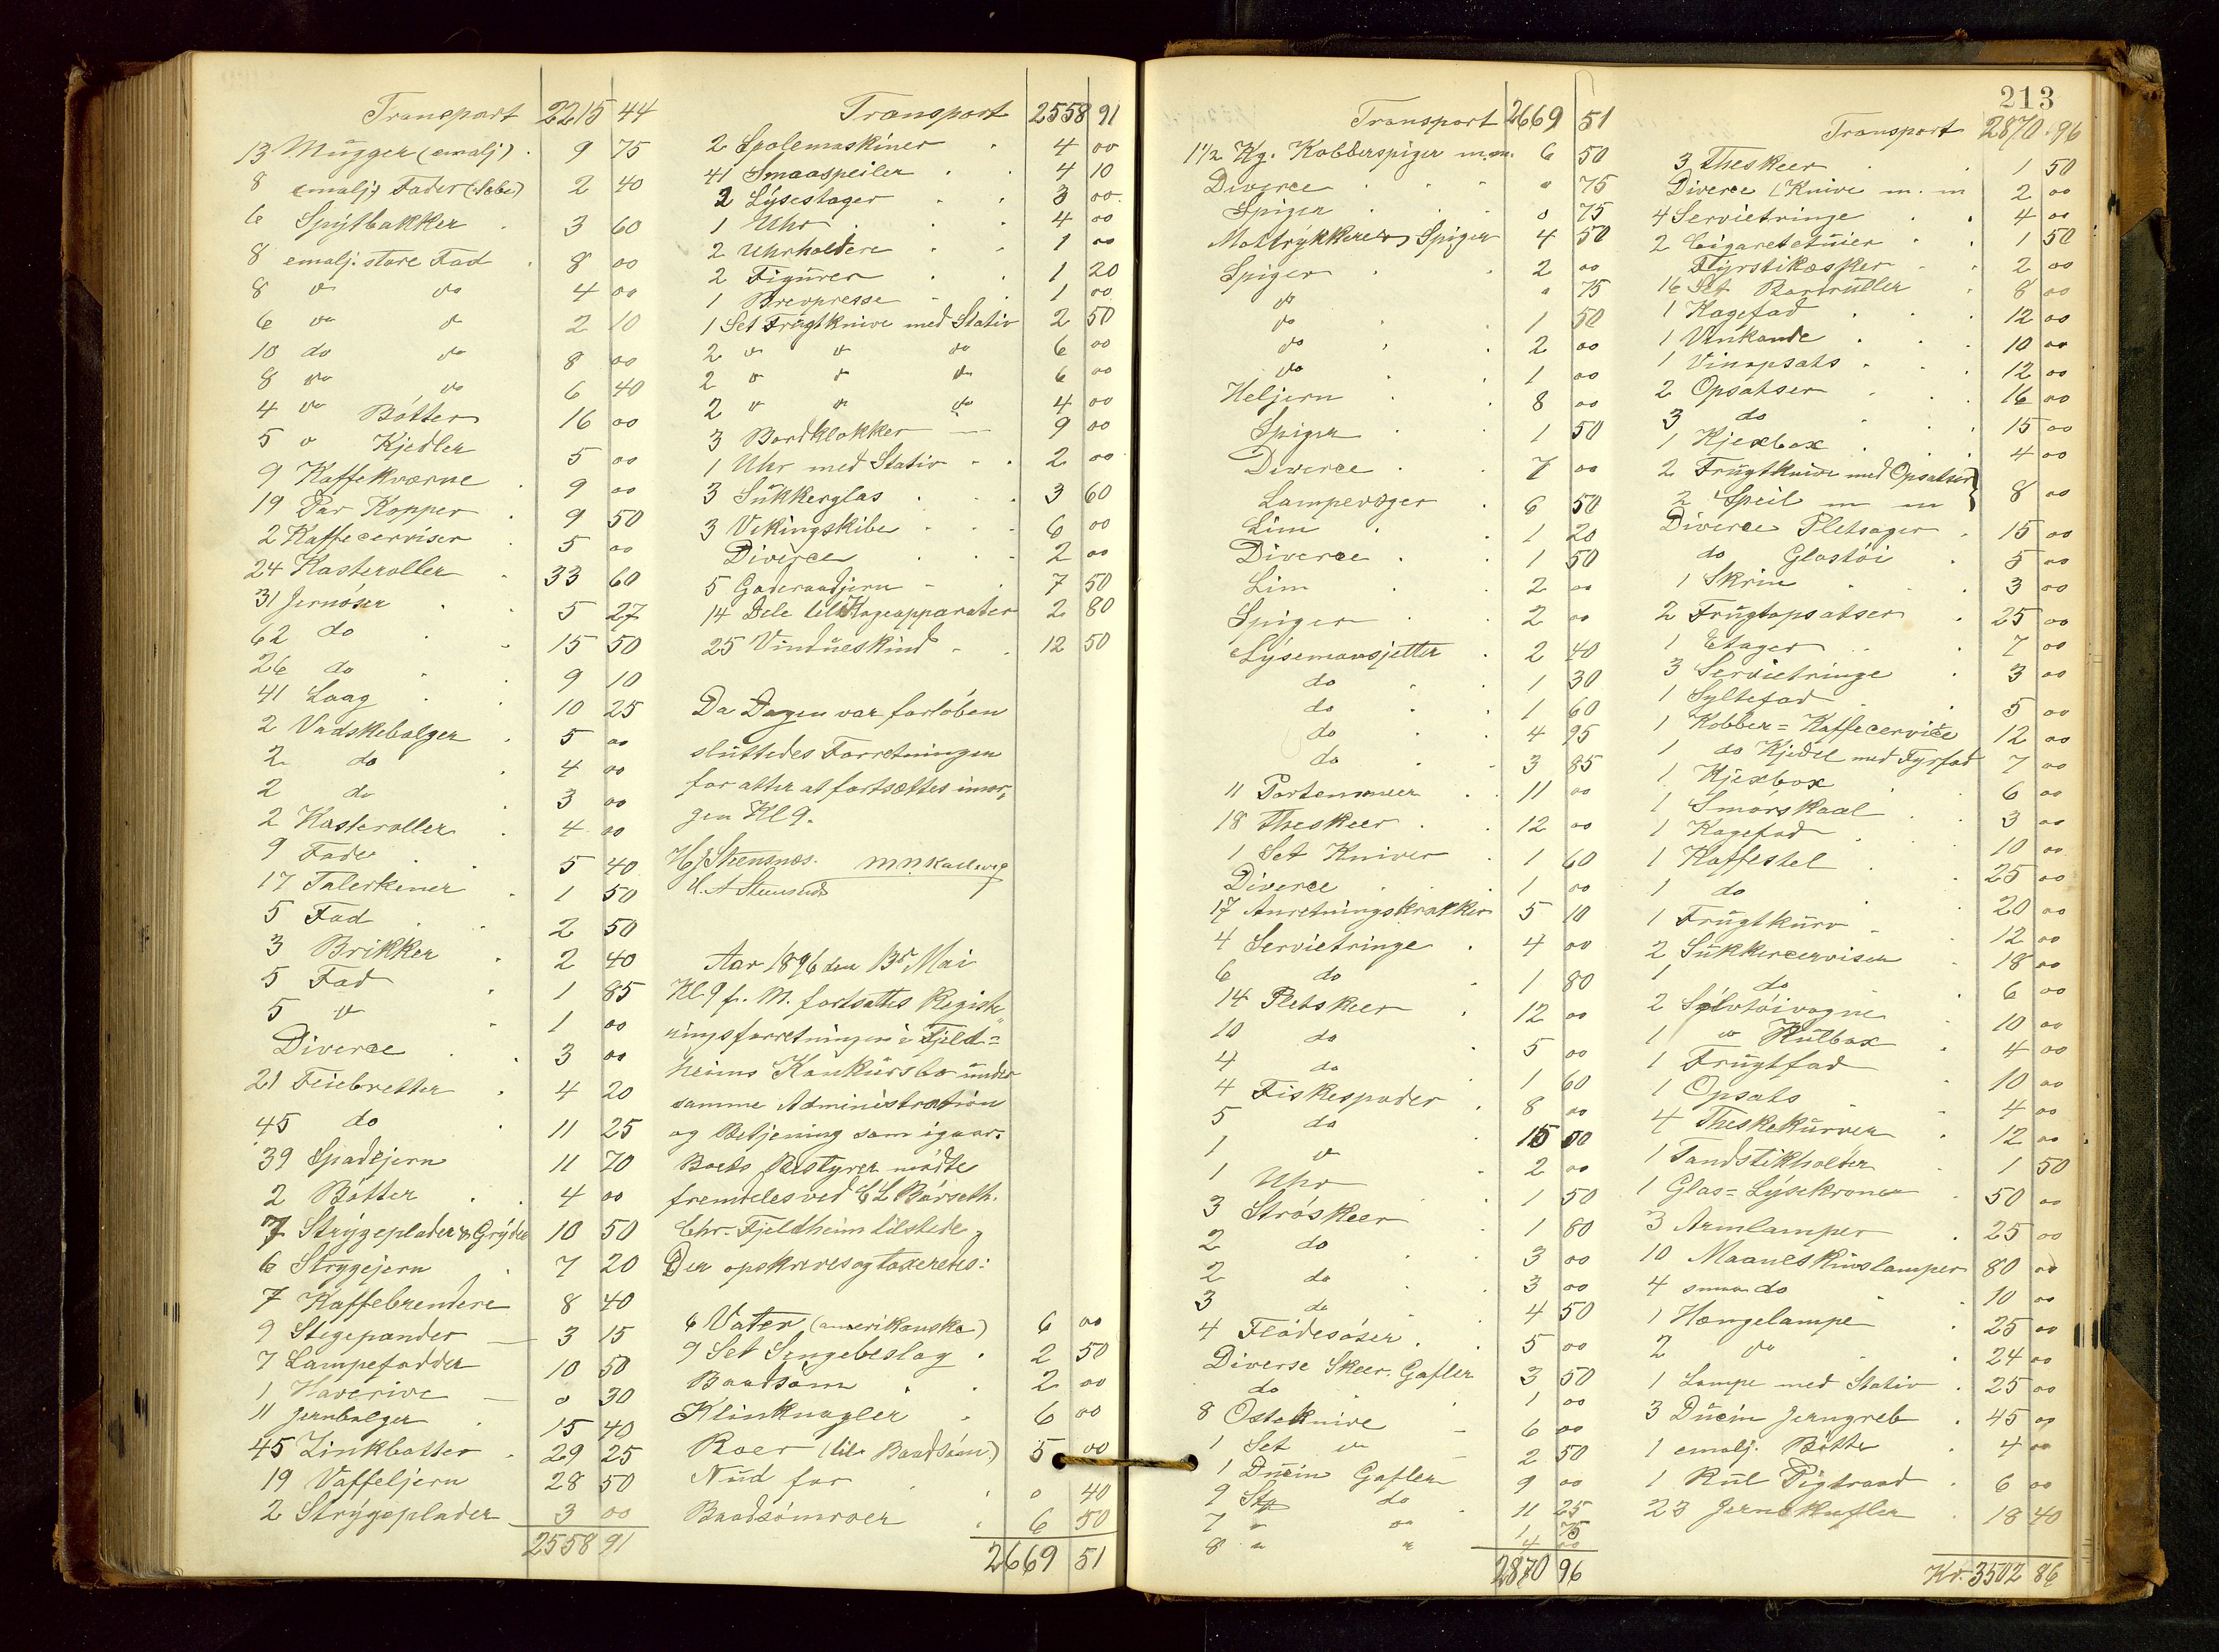 Transport 2215 44
13 Mugger (emalj) . 9 75
8 emalj. Fader (Sæbe) 2 40
6 Spytbakker . 3 60
8 emalj. store Fad . 8 00
8 do do 4 00
6 do do 2 10
10 do do 8 00
8 do do 6 40
4 do Bötter 16 00
5 do Kjedler 5 00
9 Kaffekværne . 9 00
19 Par Kopper . 9 50
2 Kaffecerviser . 5 00
24 Kasteroller . 33 60
31 Jernöser . . 5 27
62 do . . 15 50
26 do . . 9 10
41 Laag . . 10 25
2 Vadskebalger . 5 00
2 do . 4 00
2 do . 3 00
2 Kasteroller . 4 00
9 Fade . . 5 40
17 Talerkener . 1 50
5 Fad . . 2 50
3 Brikker . 2 40
5 Fad . 1 85
5 do . 1 00
Diverce . . 3 00
21 Feiebretter . 4 20
45 do . 11 25
39 Spadejern 11 70
2 Bötter . . 4 00
7 Strygeplader & Gryder 10 50
6 Strygejern . 7 20
7 Kaffebrendere 8 40
9 Stegepander — 3 15
7 Lampefödder 10 50
1 Haverive — 0 30
11 Jernbalger . 15 40
45 Zinkbötter . 29 25
19 Vaffeljern 28 50
2 Strygeplader 3 00
2558 91
Transport 2558 91
2 Spolemaskiner . 4 00
41 Smaaspeiler . . 4 10
2 Lysestager . . 3 00
1 Uhr . . . 4 00
2 Uhrholdere . . 1 00
2 Figurer . . 1 20
1 Brevpresse . . 1 00
1 Set Frugtknive med Stativ 2 50
2 do do do 6 00
2 do do do 6 00
2 do do do 4 00
3 Bordklokker — 9 00
1 Uhr med Stativ . . 2 00
3 Sukkerglas . . . 3 60
3 Vikingskibe . . . 6 00
Diverce . . . 2 00
5 Goderaadjern . . 7 50
14 Dele til Kogeapparater 2 80
25 Vindueskind . . 12 50
Da Dagen var forlöben
sluttedes Forretningen
for atter at fortsættes imor„
gen Kl 9.
H J Steensnæs. M N Kallevig
Aar 1896 den 13de Mai
Kl 9 f. M. fortsattes Registe„
ringsforretningen i Fjeld=
heims Konkursbo under
samme Administration
og Betjening som igaar.
Boets Bestyrer mödte
fremdeles ved E L Börseth.
Chr. Fjeldheim tilstede,
Der opskreves og taxeredes:
6 Vater (amerikanske) 6 00
9 Set Sengebeslag . 2 50
Baadsöm . . 2 00
Klinknagler . 6 00
Roer (til Baadsöm) 5 00
Nud for . . 0 40
Baadsömroer . 6 50
2669 51
Transport 2669 51
1 1/2 Kg. Kobberspiger m.m. 6 50
Diverce . . . 0 75
Spiger . . . 0 75
Maltrykkere & Spiger 4 50
Spiger . . 2 00
do . 0 75
do . . 1 50
do . . 2 00
do . 1 00
Heljern . . 8 00
Spiger . . 1 50
Diverce . . 7 00
Lampevæger . 6 50
Lim . . 1 20
Diverce . . 1 50
Lim . . 2 00
Spiger . . 2 00
Lysemansjetter . 2 40
do . . 1 30
do . . 1 60
do . . 4 95
do . . 3 85
11 Portemoneer . . 11 00
18 Theskeer . . 12 00
1 Set Kniver . 1 60
Diverce . . 1 00
17 Anretningskrakker 5 10
4 Servietringe . 4 00
6 do . 1 80
14 Pletskeer . 12 00
10 do . 5 00
4 do . 1 60
4 Fiskespader . 8 00
5 do . 15 50
1 do . 2 00
1 Uhr . . 1 50
3 Ströskeer . 1 80
2 do . . 3 00
2 do . . 3 00
3 do . . 4 50
4 Flödesöser . . 5 00
Diverse Skeer, Gafler 3 50
do . 1 00
8 Osteknive — 6 00
1 Set do . 2 50
1 Dusin Gafler 9 00
9 Stk do . 11 25
7 " do 1 75
8 " " 4 00
2870 96
213
Transport 2870.96
3 Theskeer . . 1 50
Diverce (Knive m. m 2 00
4 Servietringe . . 4 00
2 Cigaretetuier . . 1 50
Fyrstikæsker . . 2 00
16 Set Barruller . 8 00
1 Kagefad . . . 12 00
1 Vinkande . . . 10 00
1 Vinopsats . . . 12 00
2 Opsatser . . . 16 00
3 do . . . 15 00
1 Kjexbox . . . 4 00
2 Frugtknive med Opsatser}
2 Speil m m } 8 00
Diverce Pletsager . 15 00
do Glastöi . 5 00
1 Skrin . . 3 00
2 Frugtopsatser . 25 00
1 Etager . . 7 00
3 Servietringe . 3 00
1 Syltefad . . 5 00
1 Kobber=Kaffecervice 12 00
1 do Kjedel med Fyrfad 7 00
1 Kjexbox . . 6 00
1 Smörskaal . . 3 00
1 Kagefad . . 10 00
1 Kaffestel . . 25 00
1 do . . 20 00
1 Frugtkurv . . 12 00
2 Sukkercerviser . 18 00
1 do . 6 00
2 Sölvtöivogne 10 00
1 do Kulbox . 4 00
1 Frugtfad . 10 00
1 Opsats . . 4 00
4 Theskekurver . 12 00
1 Tandstikholder . 1 50
1 Glas=Lysekroner . 50 00
3 Armlamper . 25 00
10 Maaneskinslamper 80 00
4 smaa do . 10 00
1 Hængelampe . 25 00
2 do . . 24 00
1 Lampe med Stativ . 25 00
3 Dusin Jerngreb . 45 00
1 emalj. Bötte . 4 00
1 Rul Pigtraad . 6 00
23 Jernskufler . 18 40
Kr. 3502 86